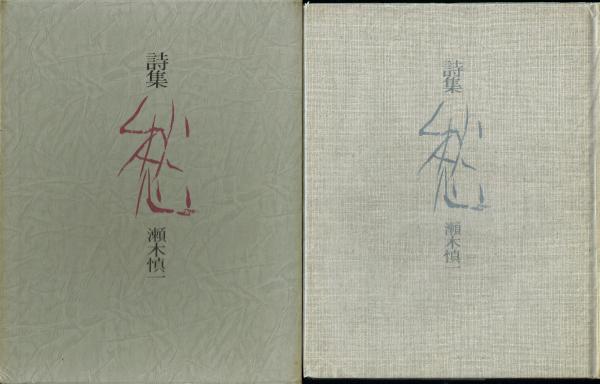 詩集
瀬木慎一
詩集
瀬木慎一